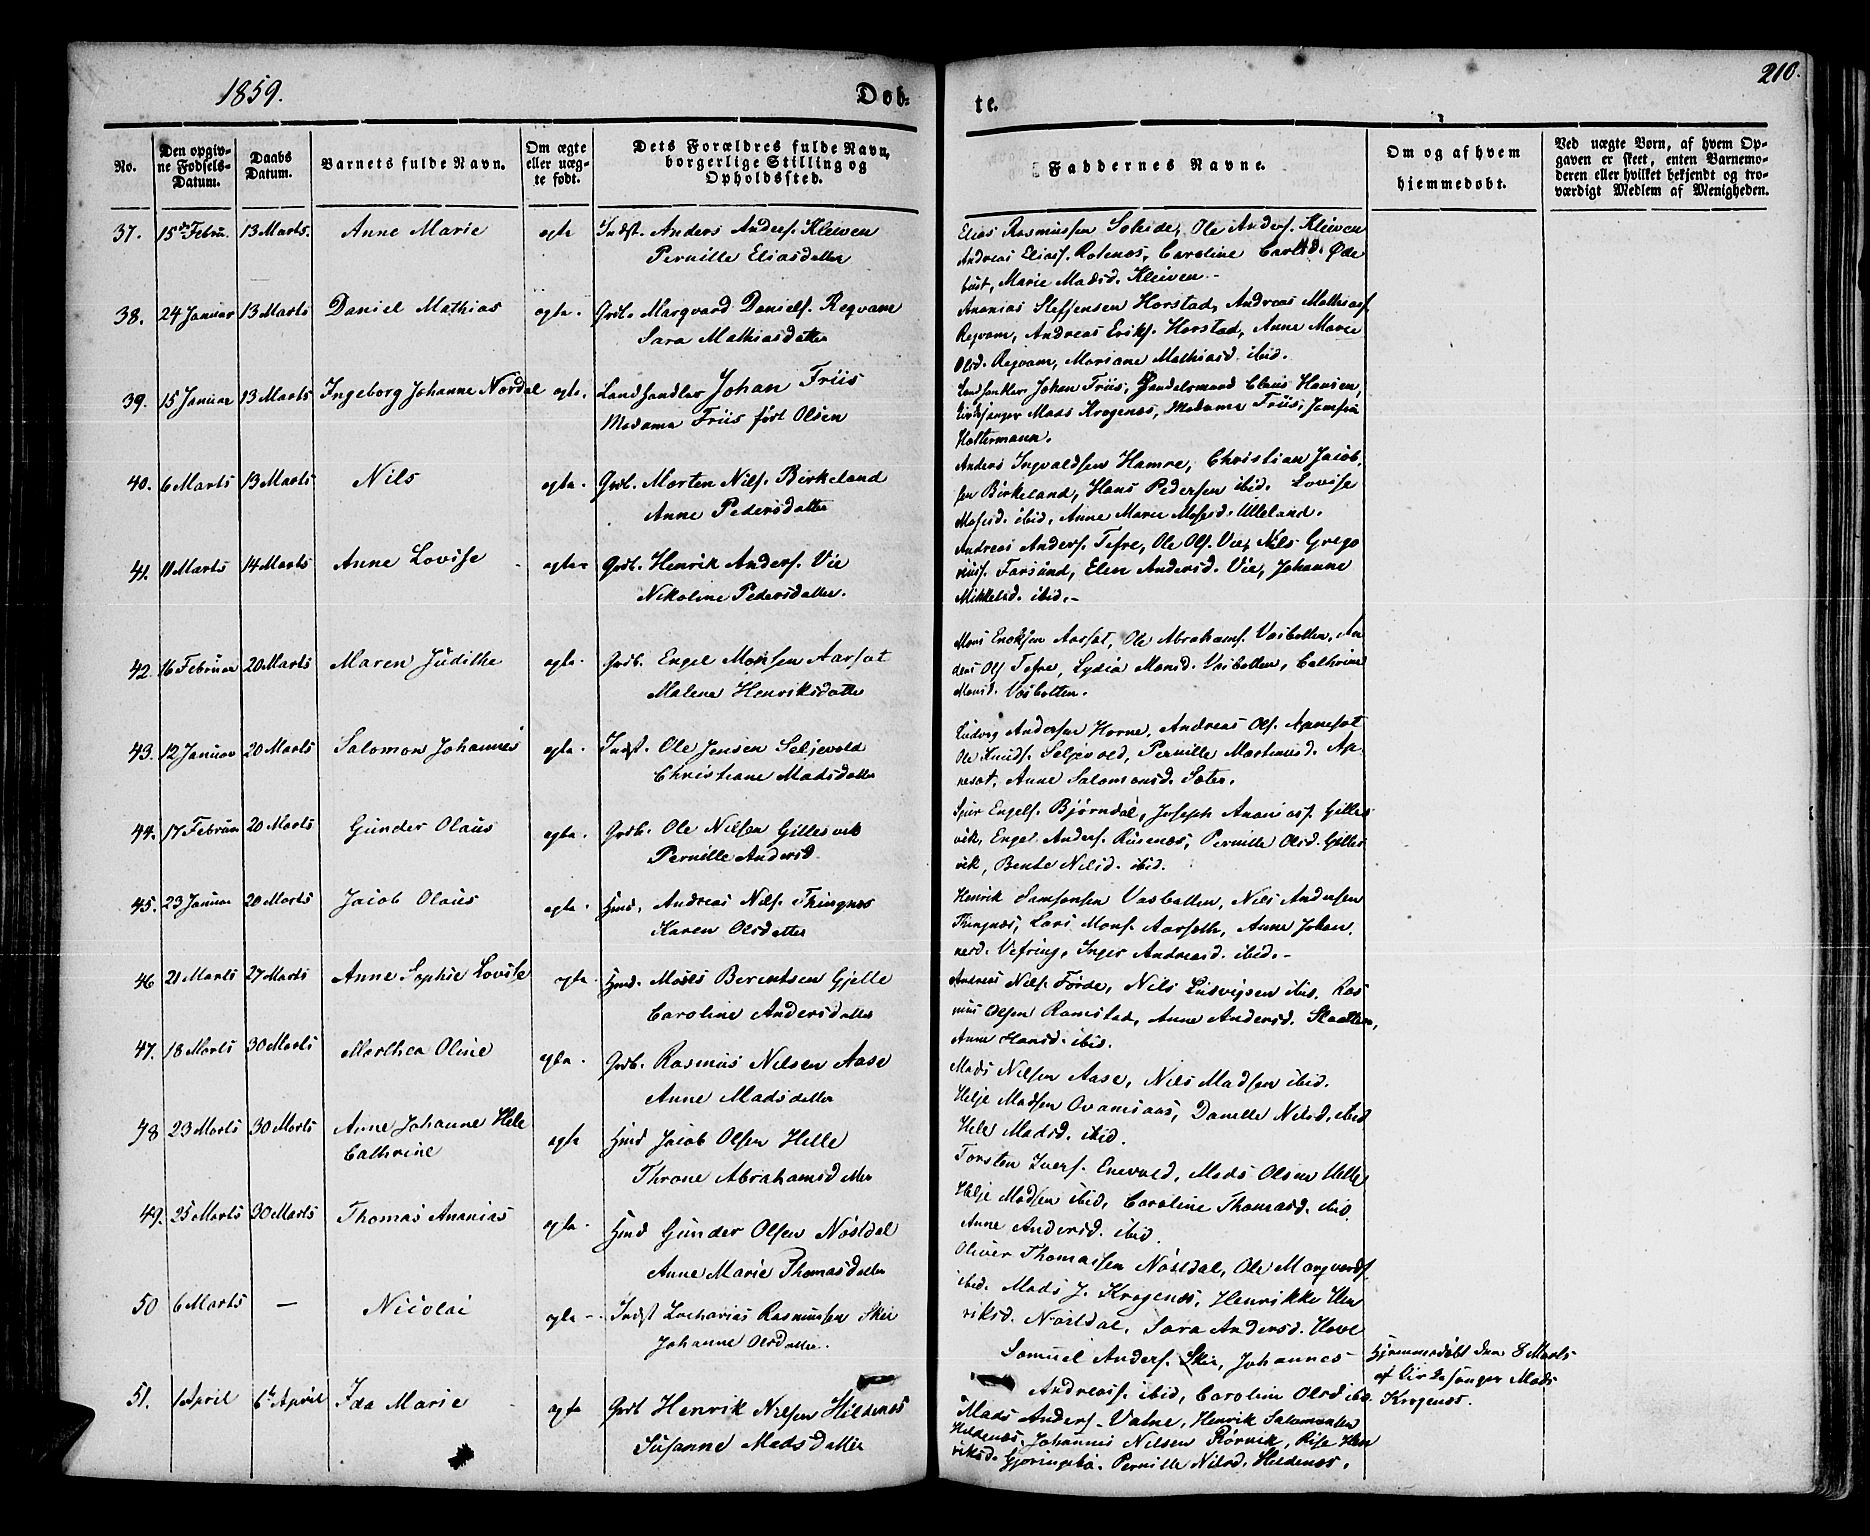 1859.
Døb-
te.
210.
No.
Den opgiv-
ne Fødsels-
Datum.
Daabs
Datum.
Barnets fulde Navn.
Om ægte
eller uæg-
te født.
Dets Forældres fulde Navn,
borgerlige Stilling og
Opholdssted.
Faddernes Navne.
Om og af hvem
hjemmedøbt.
Ved uægte Børn, af hvem Op-
gaven er skeet, enten Barnemo-
deren eller hvilket bekjendt og tro-
værdigt Medlem af Menigheden.
37. 15de Febru. 13 Marts. Anne Marie ægte Indst. Anders Anders. Kleiven
Pernille Eliasdatter
Elias Rasmussen Soleide, Ole Anders. Kleiven
Andreas Eliass. Rotenæs, Caroline Carlsd. Øde
bust, Marie Madsd. Kleiven.
38. 24 Januar 13 Marts Daniel Mathias ægte. Grdb. Marqvard Daniels. Regvam
Sara Mathiasdatter
Ananias Steffensen Horstad, Andreas Mathiass.
Regvam, Andreas Eriks. Horstad, Anne Marie
Olsd. Regvam, Mariane Mathiasd. ibid.
39. 15 Januar 13 Marts Ingeborg Johanne Nordal ægte. Landhandler Johan Friis
Madame Friis født Olsen
Landhandler Johan Friis, Handelsmand Claus Hansen,
Kirkjsanger Mads Krogenæs, Madame Friis, Jomfru
Holtermann.
40. 6 Marts 13 Marts Nils ægte. Grdb. Morten Nils. Birkeland
Anne Pedersdatter
Anders Ingvaldsen Hamre, Christian Jacob-
sen Birkeland, Hans Pedersen ibid. Lovise
Mosesd. ibid, Anne Marie Mosesd. Ulleland.
41. 11 Marts 14 Marts Anne Lovise ægte Grdb. Henrik Anders. Vie
Nikoline Pedersdatter.
Andreas Anders. Tefre, Ole Ols. Vie, Nils Grego
riuss. Farsund, Elen Andersd. Vie, Johanne
Mikkelsd. ibid.
42. 16 Februar 20 Marts Maren Judithe ægte. Grdb. Engel Monsen Aarsæt
Malene Henriksdatter
Mons Enoksen Aarsæt, Ole Abrahams. Vasbotten, An
dreas Ols. Tefre, Lydia Monsd. Vasbotten, Cathrine
Monsd. Vasbotten.
43. 12 Januar 20 Marts Salomon Johannes ægte. Indst. Ole Jensen Seljevold
Christiane Madsdatter
Ludvig Andersen Horne, Andreas Ols. Apnesæt
Ole Knuds. Seljevold, Pernille Martinusd. Ap-
nesæt, Anne Salomonsd. Sæter.
44. 17 Februar 20 Marts Gunder Olaus ægte. Grdb. Ole Nilsen Gillesvik
Pernille Andersd.
Sjur Engels. Bjørndal, Joseph Ananiass. Gilles
vik, Engel Anders. Risenæs, Pernille Olsd. Gilles
vik, Bente Nilsd. ibid.
45. 23 Januar 20 Marts Jacob Olaus ægte. Hmd. Andreas Nils. Thingnes
Karen Olsdatter
Henrik Samsonsen Vasbotten, Nils Andersen
Thingnæs, Lars Mons. Aarsæth, Anne Johan
nesd. Vefring, Inger Andreasd. ibid.
46 21 Marts 27 Marts Anne Sophie Lovise ægte. Hmd. Moses Berentsen Gjelle
Caroline Andersdatter
Andreas Nils. Førde, Nils Ludvigsen ibid, Ras
mus Olsen Ramstad, Anne Andersd. Slaatten,
Anne Hansd. ibid.
47. 18 Marts 30 Marts Marthea Oline ægte. Grdb. Rasmus Nilsen Aase
Anne Madsdatter
Mads Nilsen Aase, Nils Madsen ibid.
Helje Madsen Ovamsaas, Danelle Nilsd. ibid
Hele Madsd. ibid.
48 23 Marts 30 Marts Anne Johanne Hele
Cathrine ægte Hmd Jacob Olsen Helle
Throne Abrahamsdatter
Torsten Ivers. Enevold, Mads Olsen Helle
Helje Madsen ibid, Caroline Thomasd. ibid.
Anne Andersd. ibid.
49. 25 Marts 30 Marts Thomas Ananias ægte. Hmd Gunder Olsen Nøstdal
Anne Marie Thomasdatter
Oliver Thomassen Nøstdal, Ole Marqvards.
ibid. Mads J. Krogenæs, Henrikke Hen
riksd. Nøstdal, Sara Andersd. Hove
50 6 Marts — Nicolai ægte Indst Zacharias Rasmussen Skei
Johanne Olsdatter.
Samuel Anders. Skei, Johannes
Andreass. ibid, Caroline Olsd ibd.
Hjemmedøbt den 8 Marts
af Kirkesanger Mads
Krogenæs.
51. 1 April 6te April Ida Marie ægte Grdb Henrik Nilsen Hildenæs
Susanne Madsdatter
Mads Anders. Vatne, Henrik Salomonsen
Hildenæs, Johannes Nilsen Rørvik, Rise Hen
riksd. Gjøringebø. Pernille Nilsd. Hildenæs.